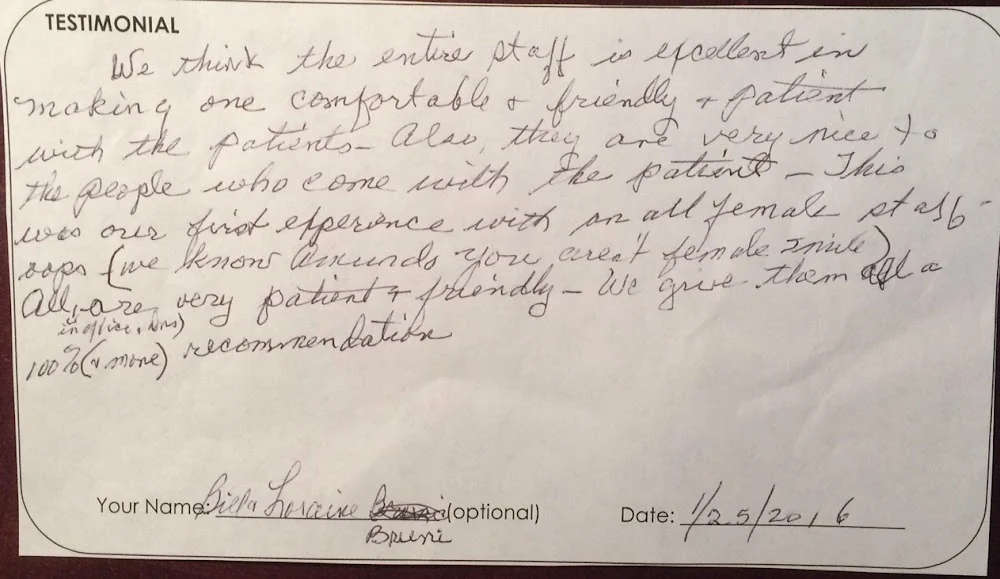 TESTIMONIAL
We think the entire staff is excellent in
making one comfortable & friendly & patient
with the patients - Also, they are very nice to
the people who come with the patient - This
was our first experience with an all female staff -
oops (we know you aren't female smile)
All, are very patient & friendly - We give them all a
in office,
100% (& more) recommendation
Your Name: Loraine (optional)
Bruni
Date: 1/25/2016